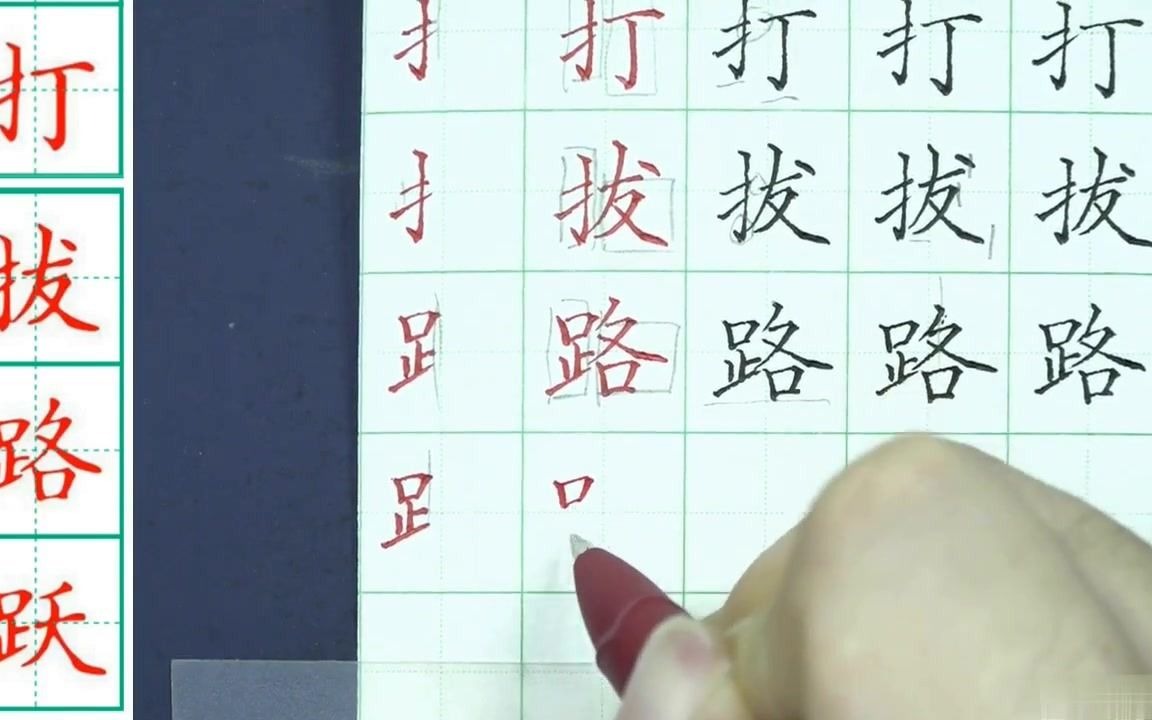 打
拔
路
跃
扌打打打打
扌拔拔拔拔
𧾷路路路路
𧾷口